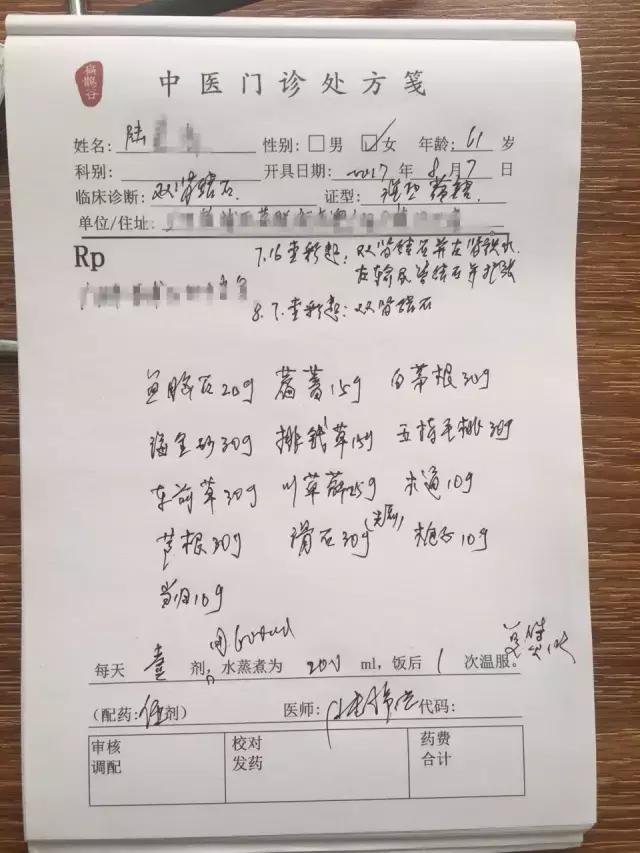 扁鹊谷
中医门诊处方笺
姓名: 陆 性别: 男 女 年龄: 61 岁
科别: 开具日期: 2017 年 8 月 7 日
临床诊断: 双肾结石 证型:
单位/住址:
Rp
7.16查彩超: 双肾结石并左肾积水
左输尿管结石并扩张
8.7.查彩超: 双肾结石
鱼脑石20g 萹蓄15g 白茅根30g
海金砂30g 排钱草15g 五指毛桃30g
车前草30g 川草薢25g 木通10g
芦根30g 滑石30g(先煎) 枹子10g
当归10g
每天 壹 剂, 水蒸煮为 200 ml, 饭后 1 次温服。
(配药: 剂) 医师: 代码:
审核 校对 药费
调配 发药 合计